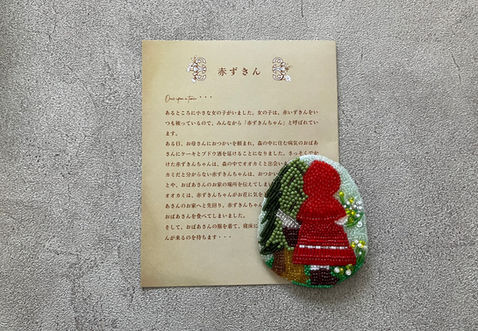 赤ずきん
Once upon a time・・・
あるところに小さな女の子がいました。女の子は、赤いずきんをい
つも被っているので、みんなから「赤ずきんちゃん」と呼ばれてい
ます。
ある日、お母さんにおつかいを頼まれ、森の中に住む病気のおばあ
さんにケーキとブドウ酒を届けることになりました。さっそくでか
けた赤ずきんちゃんは、森の中でオオカミと出会い
カミだと分からない赤ずきんちゃんは、おつかい
とや、おばあさんのお家の場所を伝えてしまい
オオカミは、赤ずきんちゃんがお花に気を
あさんのお家へと先回り。赤ずきんちゃん
おばあさんを食べてしまいました。
そして、おばあさんの服を着て、寝床に
んが来るのを待ちます・・・